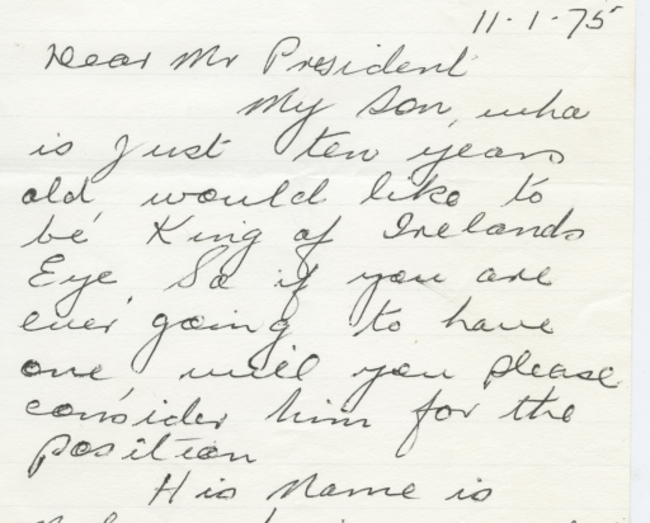 11-1-75
Dear Mr President
My Son, who
is just ten years
old would like to
be King of Irelands
Eye, So if you are
ever going to have
one, will you please
consider him for the
position
His Name is